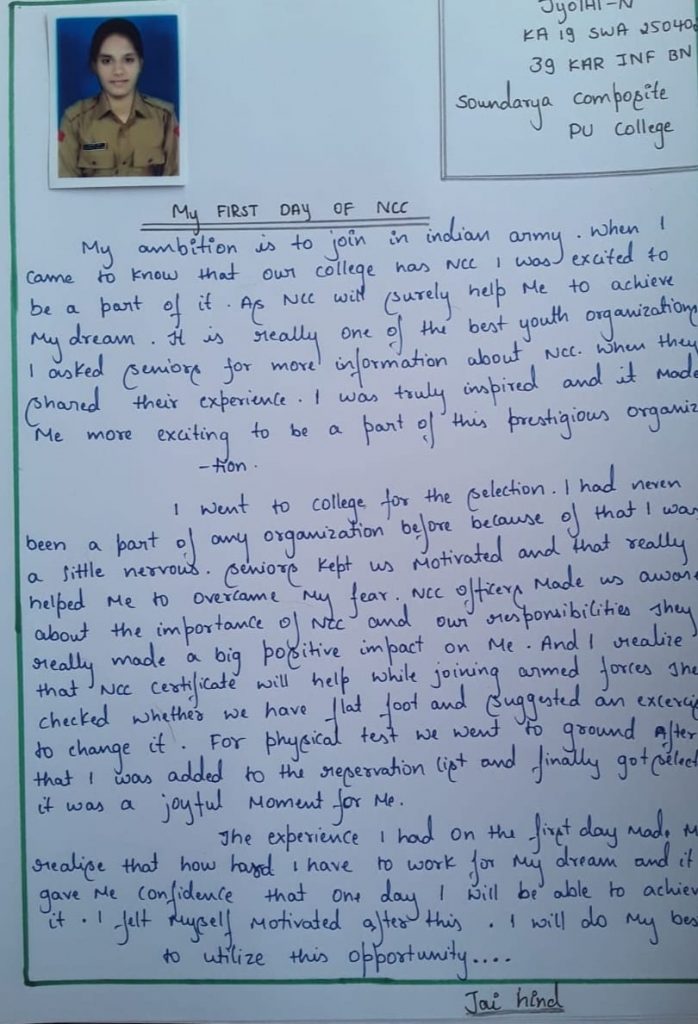 Jyothi-N
KA 19 SWA 25040
39 KAR INF BN
Soundarya Composite
PU College
My FIRST DAY OF NCC
My ambition is to join in indian army. When I
came to know that our college has NCC I was excited to
be a part of it. As NCC will surely help Me to achieve
My dream. It is really one of the best youth organizations
I asked seniors for more information about NCC. When they
shared their experience. I was truly inspired and it Made
Me more exciting to be a part of this prestigious organiz
-tion.
I went to college for the selection. I had never
been a part of any organization before because of that I was
a little nervous. Seniors kept us Motivated and that really
helped Me to overcame My fear. NCC officers Made us aware
about the importance of NCC and our responsibilities They
really made a big positive impact on Me. And I realize
that NCC certificate will help while joining armed forces The
checked whether we have flat foot and suggested an excerci
to change it. For physical test we went to ground After
that I was added to the reservation list and finally got select
it was a joyful Moment for Me.
The experience I had on the first day Made M
realise that how hard I have to work for My dream and it
gave Me confidence that one day I will be able to achiev
it. I felt Myself Motivated after this. I will do My bes
to utilize this opportunity....
Jai hind